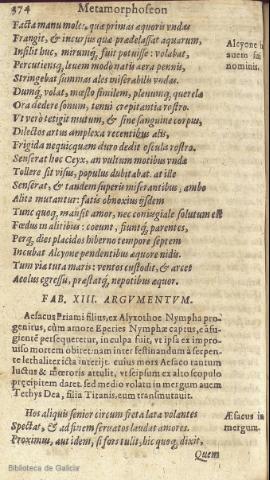 374 Metamorphoseon
Facta manu moles, quæ primas æquoris vndas
Frangit, & incursus quæ prædelassat aquarum,
Insilit huc, mirumq́; fuit potuisse: volabat,
Percutiensq́; leuem modò natis aera pennis,
Stringebat summas ales miserabilis vndas.
Dumq́; volat, mæsto similem, plenumq́; querelæ
Ora dedere sonum, tenui crepitantia rostro.
Vt verò tetigit mutum, & sine sanguine corpus,
Dilectos artus amplexa recentibus alis,
Frigida nequicquam duro dedit oscula rostro.
Senserat hoc Ceyx, an vultum motibus vndæ
Tollere sit visus, populus dubitabat. at ille
Senserat, & tandem superis miserantibus, ambo
Alite mutantur: fatis obnoxius ijsdem
Tunc quoq́; mansit amor, nec coniugiale solutum est
Fœdus in alitibus: coeunt, fiuntq́; parentes,
Perq́; dies placidos hiberno tempore septem
Incubat Alcyone pendentibus æquore nidis.
Tum via tuta maris: ventos custodit, & arcet
Aeolus egressu, præstatq́; nepotibus æquor.
Alcyone in
auem sui
nominis.
FAB. XIII. ARGVMENTVM.
Aesacus Priami filius, ex Alyxothoe Nympha pro-
genitus, cùm amore Eperies Nymphæ captus, eā fu-
gientē persequeretur, in culpa fuit, vt ipsa ex impro-
uiso mortem obiret: nam inter festinandum à serpen-
te lethaliter icta interijt. cuius mors Aesaco tantum
luctus & mœroris attulit, vt seipsum ex alto scopulo
præcipitem daret. sed medio volatu in mergum auem
Tethys Dea, filia Titanis, eum transmutauit.
Hos aliquis senior circum freta lata volantes
Spectat, & ad finem seruatos laudat amores.
Proximus, aut idem, si fors tulit, hic quoq́; dixit,
Æsacus in
mergum.
Quem
Biblioteca de Galicia